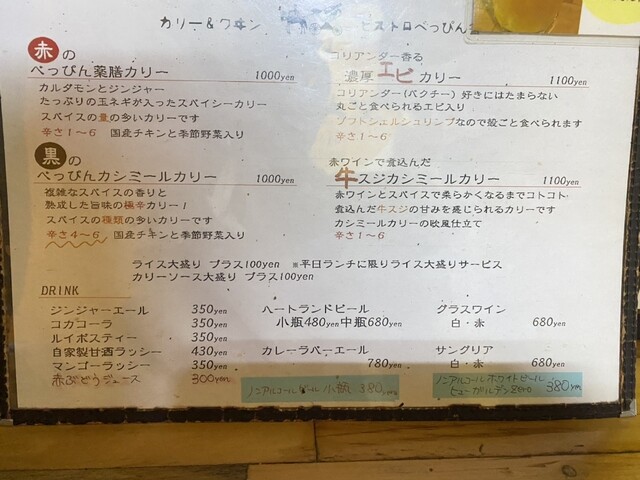 カリー＆ワイン ビストロべっぴん
赤の
べっぴん薬膳カリー 1000yen
カルダモンとジンジャー
たっぷりの玉ネギが入ったスパイシーカリー
スパイスの量の多いカリーです
辛さ1～6 国産チキンと季節野菜入り
コリアンダー香る
濃厚エビカリー 1100yen
コリアンダー(パクチー) 好きにはたまらない
丸ごと食べられるエビ入り
ソフトシェルシュリンプなので殻ごと食べられます
辛さ1～6
黒の
べっぴんカシミールカリー 1000yen
複雑なスパイスの香りと
熟成した旨味の極辛カリー！
スパイスの種類の多いカリーです
辛さ4～6 国産チキンと季節野菜入り
赤ワインで煮込んだ
牛スジカシミールカリー 1100yen
赤ワインとスパイスで柔らかくなるまでコトコト
煮込んだ牛スジの甘みを感じられるカリーです
カシミールカリーの欧風仕立て
辛さ1～6
ライス大盛り プラス100yen ※平日ランチに限りライス大盛りサービス
カリーソース大盛り プラス100yen
DRINK
ジンジャーエール 350yen
コカコーラ 350yen
ルイボスティー 350yen
自家製甘酒ラッシー 430yen
マンゴーラッシー 350yen
赤ぶどうジュース 300yen
ハートランドビール
小瓶480yen 中瓶680yen
カレーラバーエール
780yen
ノンアルコールビール 小瓶 380yen
グラスワイン
白・赤 680yen
サングリア
白・赤 680yen
ノンアルコールホワイトビール
ヒューガルデンゼロ 380yen